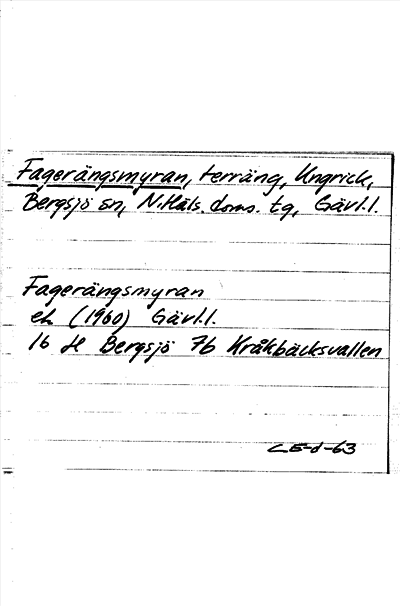 Fagerängsmyran, terräng, Ungrick,
Bergsjö sn, N.Häls. doms. tg, Gävl.l.
Fagerängsmyran
ek (1960) Gävl.l.
16 H Bergsjö 7b Kråkbäcksvallen